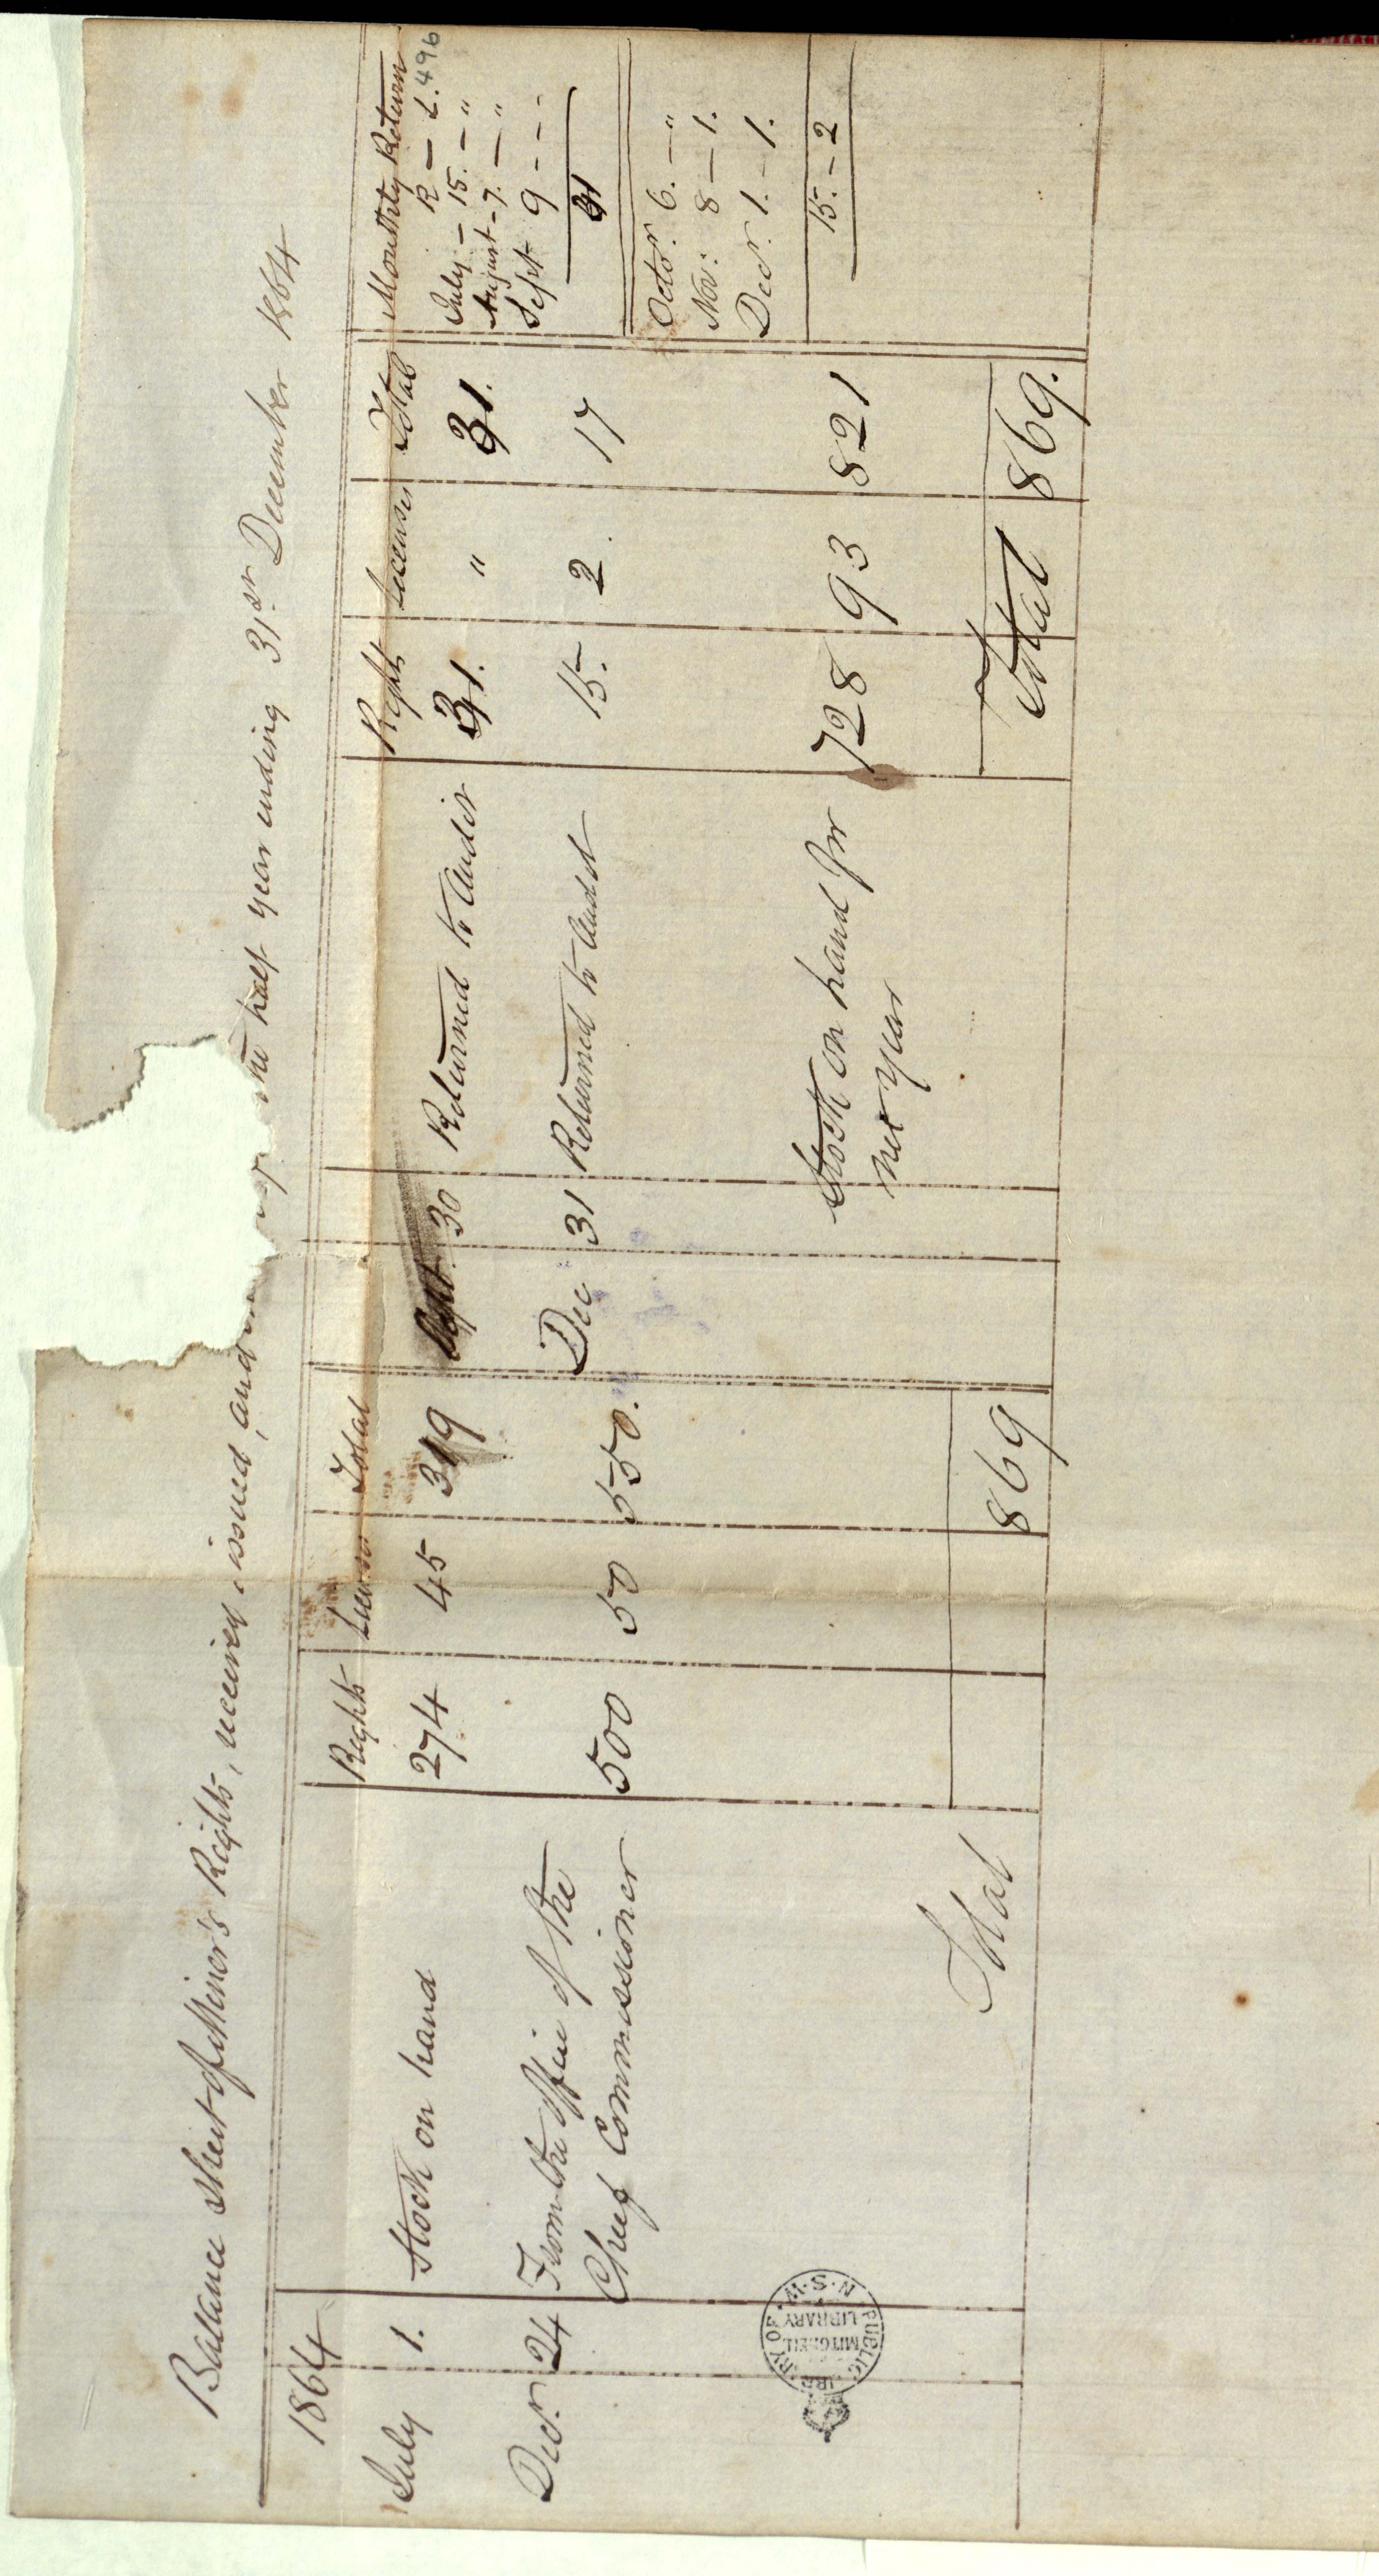 Ballance Sheet of Miner's Rights, received issued, and the half year ending 31st December 1864
1864 Rights Total Right Licenses Total Monthly Return
R — L. 496
July 1. Stock on hand 274 45 319 Sept. 30 Returned to Audit 31. " 31. July — 15. — "
August - 7. — "
Sept 9 - - -
31
Decr. 24 From the Office of the Chief Commissioner 500 50 550. Dec 31 Returned to Audit 15. 2. 17 Octor. 6. — "
Nov: 8 — 1.
Decr. 1. — 1.
15. — 2
Stock on hand for 728 93 821
nex Year
Total 869 Total 869.
PUBLIC LIBRARY OF N.S.W.
MITCHELL LIBRARY